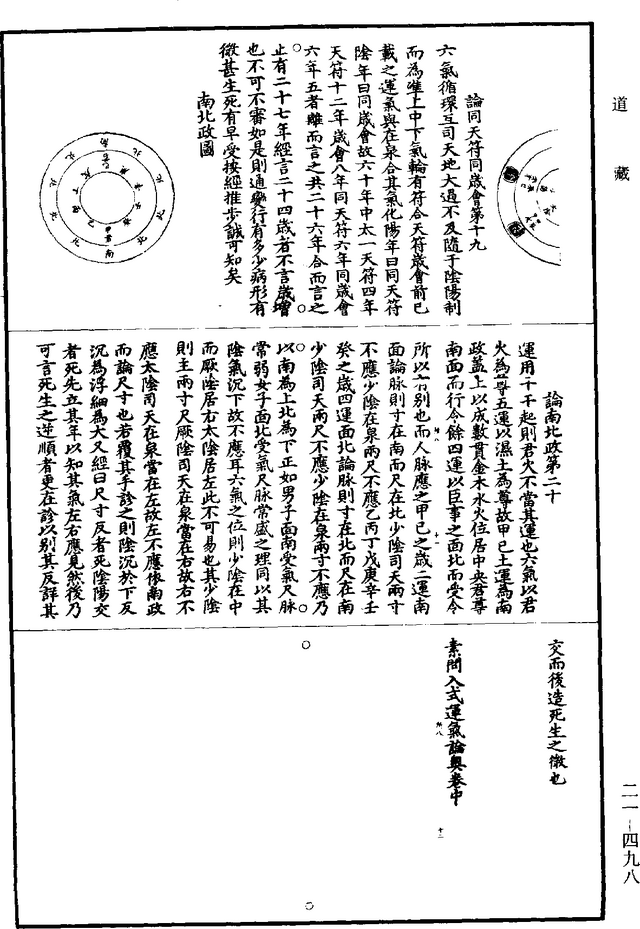 道藏
論同天符同歲會第十九
六氣循環互司天地大過不及隨于陰陽制
而為準上中下氣輪有符合天符歲會前已
載之運氣與在泉合其氣化陽年曰同天符
陰年曰同歲會故六十年中太一天符四年
天符十二年歲會八年同天符六年同歲會
六年五者離而言之共二十六年合而言之
止有二十七年經言二十四歲者不言歲會
也不可不審如是則通變行有多少病形有
微甚生死有早受按經推步誠可知矣
南北政圖
論南北政第二十
運用十干起則君火不當其運也六氣以君
火為尊五運以濕土為尊故甲己土運為南
政蓋土以成數貫金木水火位居中央君尊
南面而行令餘四運以臣事之面北而受令
所以有別也而人脉應之甲己之歲二運南
面論脉則寸在南而尺在北少陰司天兩寸
不應少陰在泉兩尺不應乙丙丁戊庚辛壬
癸之歲四運面北論脉則寸在北而尺在南
少陰司天兩尺不應少陰在泉兩寸不應乃
以南為上北為下正如男子面南受氣尺脉
常弱女子面北受氣尺脉常盛之理同以其
陰氣沉下故不應耳六氣之位則少陰在中
而厥陰居右太陰居左此不可易也其少陰
則主兩寸尺厥陰司天在泉當在右故右不
應太陰司天在泉當在左故左不應依南政
而論尺寸也若覆其手診之則陰沉於下反
沉為浮細為大又經曰尺寸反者死陰陽交
者死先立其年以知其氣左右應見然後乃
可言死生之逆順者更在診以別其反詳其
交而後造死生之微也
素問入式運氣論奧卷中
二一-四九八